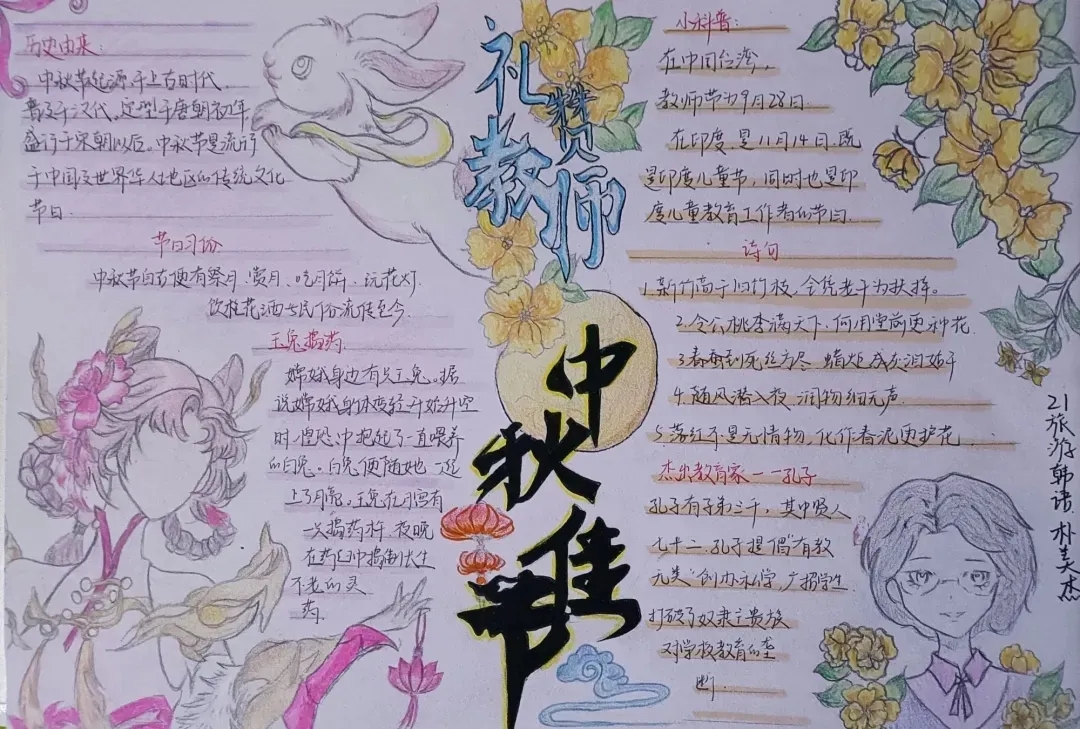 历史由来:
中秋节起源于上古时代,
普及于汉代,定型于唐朝初年
盛行于宋朝以后。中秋节是流行
于中国及世界华人地区的传统文化
节日.
节日习俗
中秋节自古便有祭月、赏月、吃月饼、玩花灯
饮桂花酒 民俗流传至今.
玉兔捣药
嫦娥身边有只玉兔。据
说嫦娥身体变轻开始升空
时,惶恐中抱起了一直喂养
的白兔。白兔便随她一起
上了月亮,玉兔在月宫有
一只捣药杵,夜晚
在药臼中捣制长生
不老的灵
药,
礼赞
教师
中秋佳节
小科普:
在中国台湾,
教师节为9月28日
在印度,是11月14日,既
是印度儿童节,同时也是印
度儿童教育工作者的节日
诗句
1.新竹高于旧竹枝,全凭老干为扶持。
2.令公桃李满天下,何用堂前更种花
3.春蚕到死丝方尽 蜡炬成灰泪始干
4.随风潜入夜,润物细无声
5.落红不是无情物,化作春泥更护花
杰出教育家——孔子
孔子有子弟三千,其中贤人
七十二,孔子提倡"有教
无类"创办私学,广招学生
打破了奴隶主贵族
对学校教育的垄
断.
21旅游韩语 朴美杰